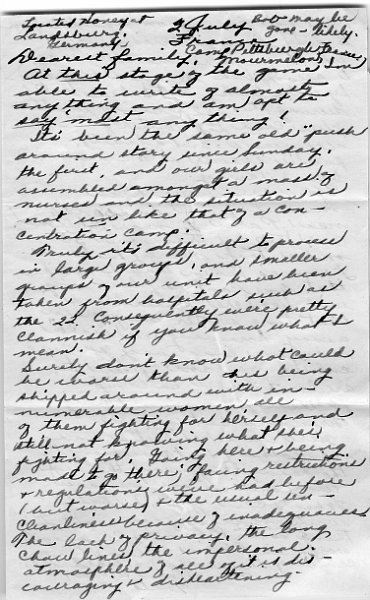 Located Honey at
Landsburg,
Germany.
2 July Bob may be
France gone - likely.
Camp Pittsburgh
Mourmelon, France
Dearest family,
At this stage of the game I'm
able to write of almost
anything and am apt to
say most anything!
It's been the same old "push
around story since Sunday,
the first, and our girls are
assembled amongst a mass of
nurses and the situation is
not un like that of a con-
centration camp.
Truly it's difficult to process
in large groups, and smaller
groups of our unit have been
taken from hospitals such as
the 2d. Consequently we're pretty
clannish if you know what I
mean.
Surely don't know what could
be worse than this being
shipped around with in-
numerable women, all
of them fighting for herself and
still not knowing what she's
fighting for. Going here & being
made to go there, facing restrictions
& regulations we've had before
(but worse) & the usual un-
cleanliness because of inadequacies
The lack of privacy, the long
chow lines, the impersonal
atmosphere of all of it is dis-
couraging & disheartening.